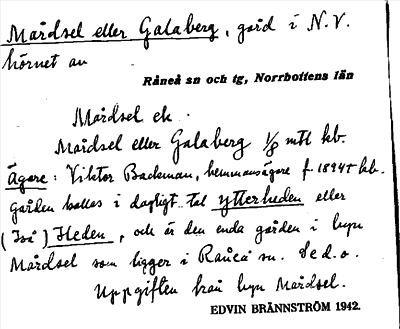 Mårdsel eller Galaberg, gård i N.V.
hörnet av
Råneå sn och tg, Norrbottens län
Mårdsel ek.
Mårdsel eller Galaberg 1/8 mtl kb.
Ägare: Viktor Backman, hemmansägare f. 1894 i kb.
Gården kallas i dagligt tal Ytterheden eller
(två) Heden, och är den enda gården i byn
Mårdsel som ligger i Råneå sn. Se d.o.
Uppgiften från byn Mårdsel.
EDVIN BRÄNNSTRÖM 1942.